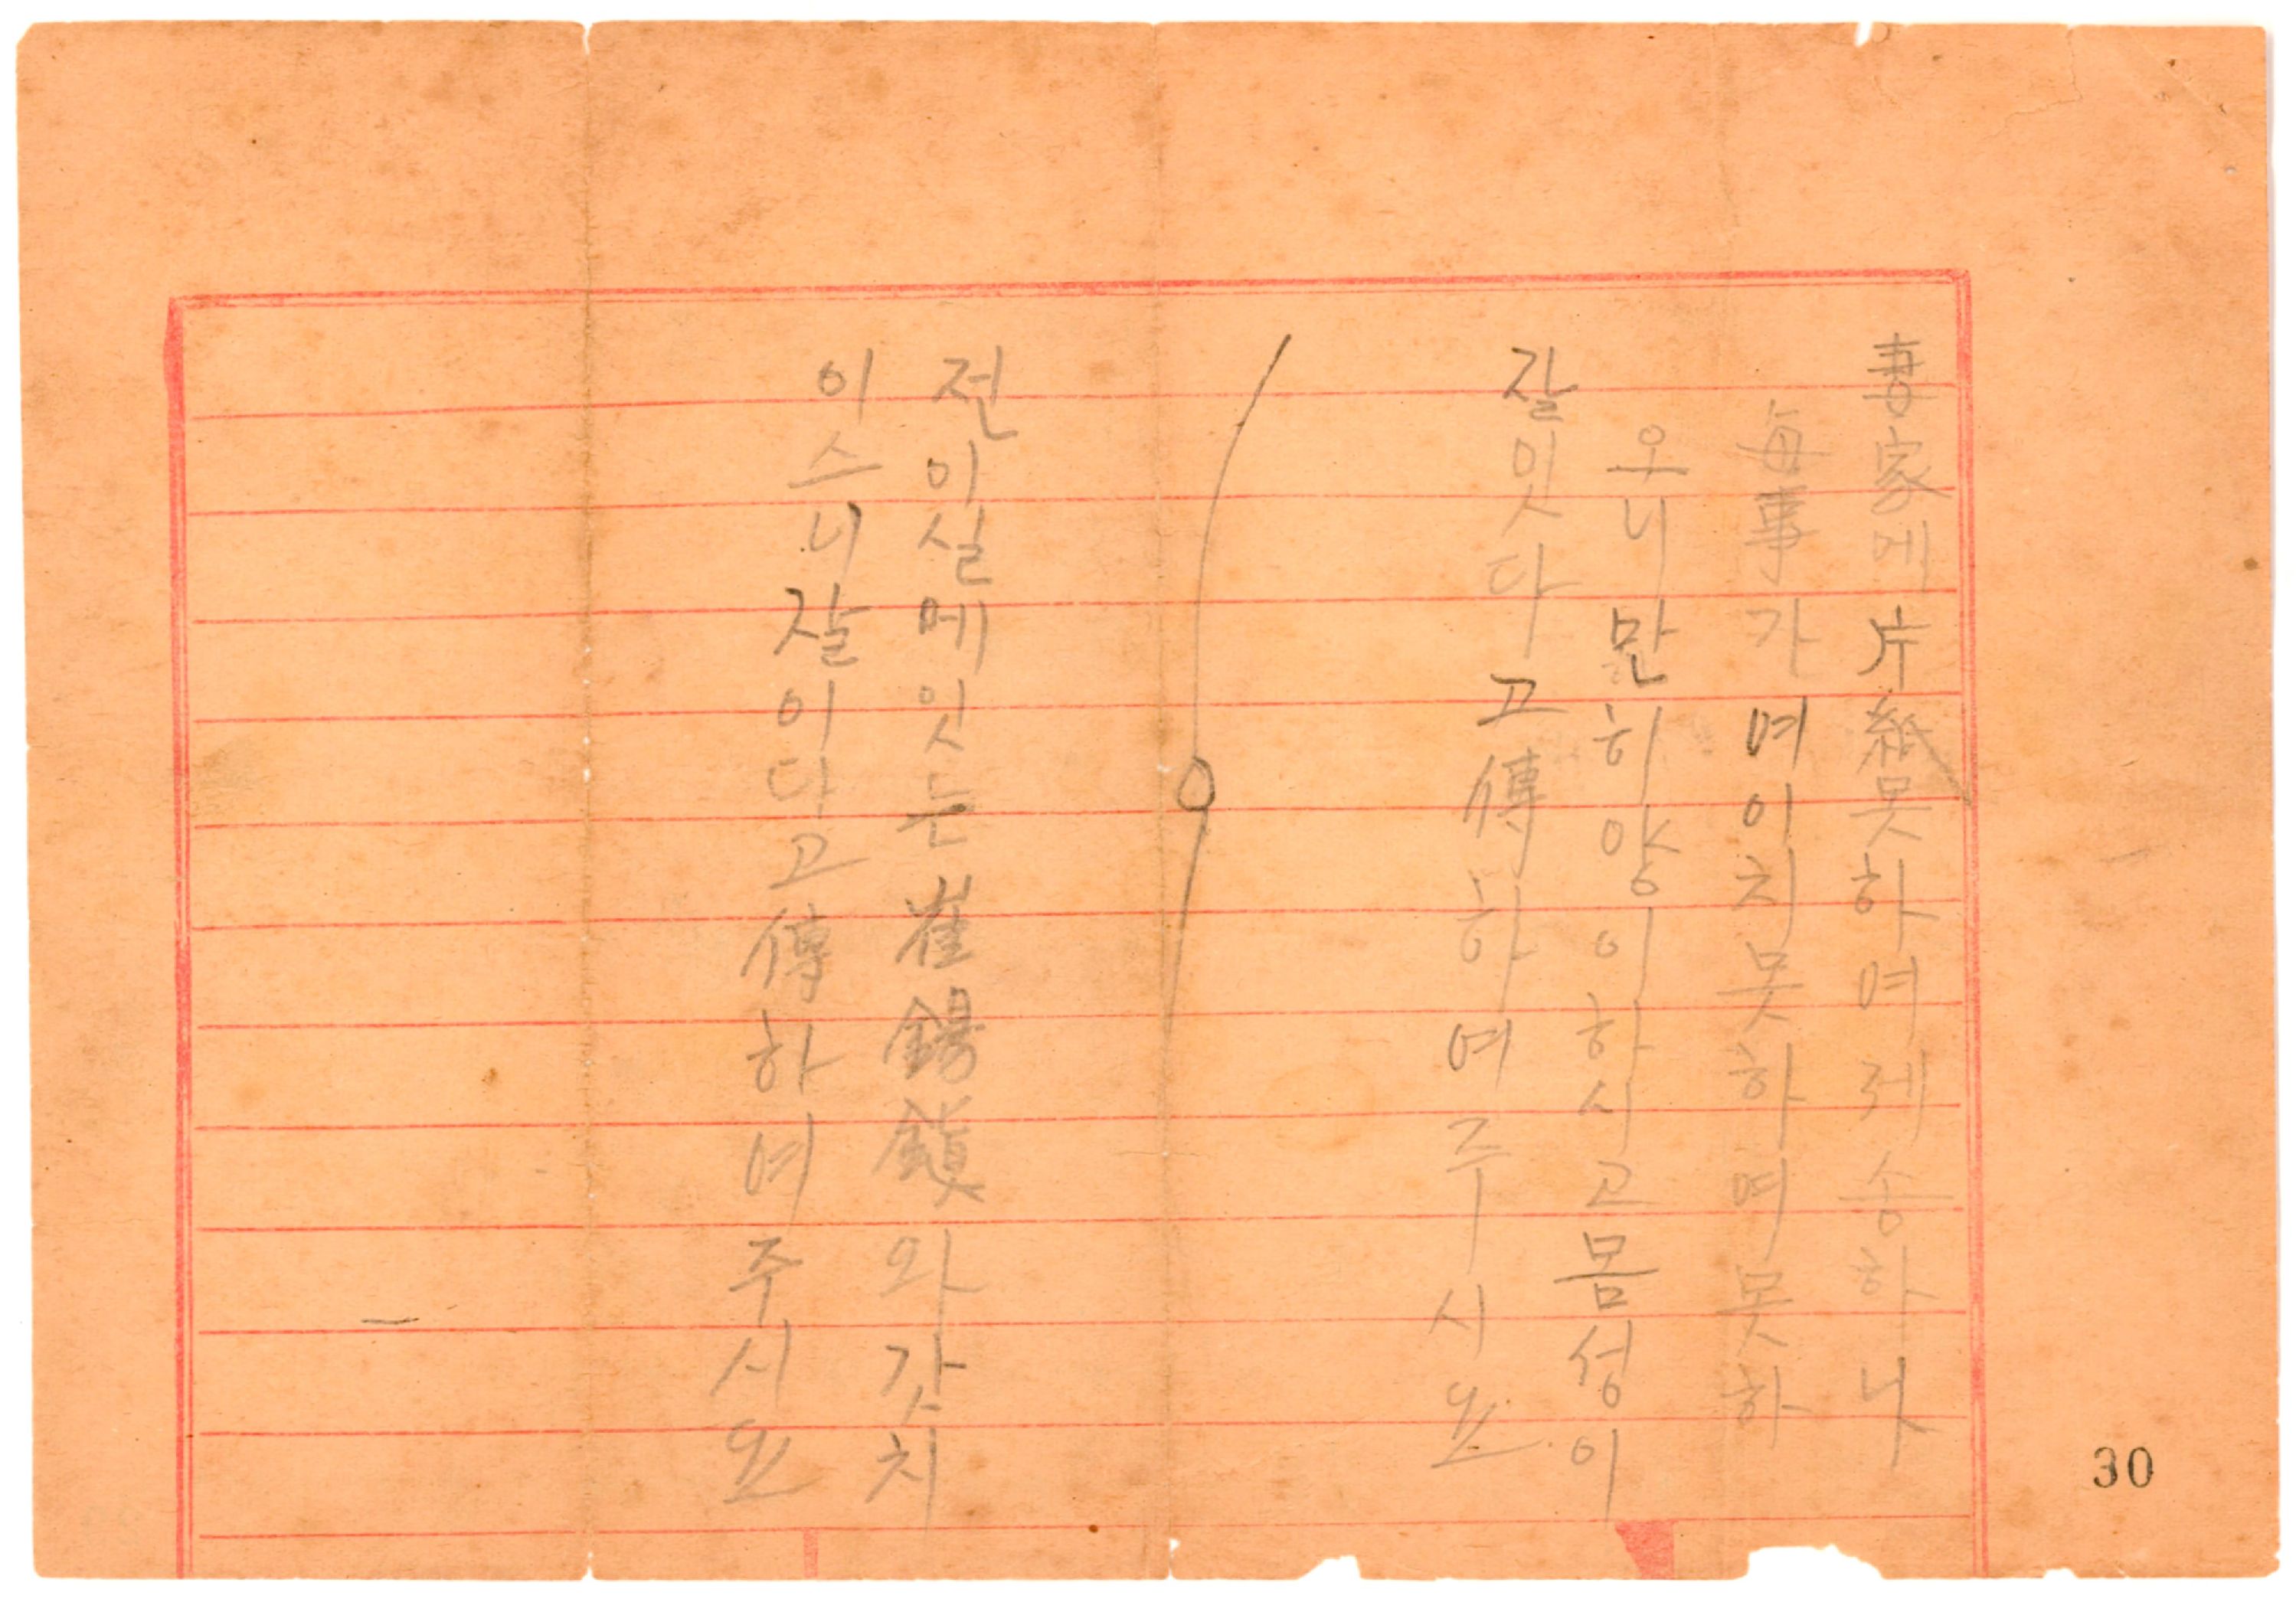 妻家에片紙못하여레송하나
每事가여이치못하여못하
오니만히양이하시고몸성이
잘잇다고傳하여주시요
전이실메잇는崔錫鎭와갓치
이스니잘이다고傳하여주시요
30